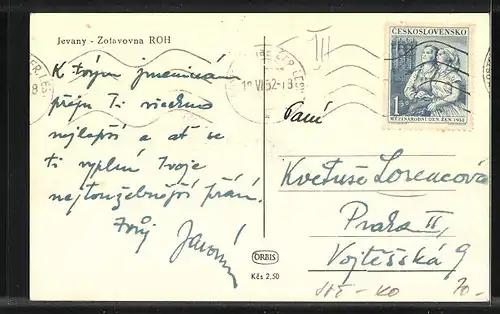 Jevany - Zotavovna ROH
K tvým jmeninám
přeju Ti všechno
nejlepší a ať se
ti vyplní Tvoje
nejtoužebnější přání.
Tvůj
ORBIS
Kčs 2,50
VI 52-18
ČESKOSLOVENSKO
1
MEZINÁRODNÍ DEN ŽEN 1952
Paní
Květuše Lorencová
Praha II,
Vojtěšská 9
70-